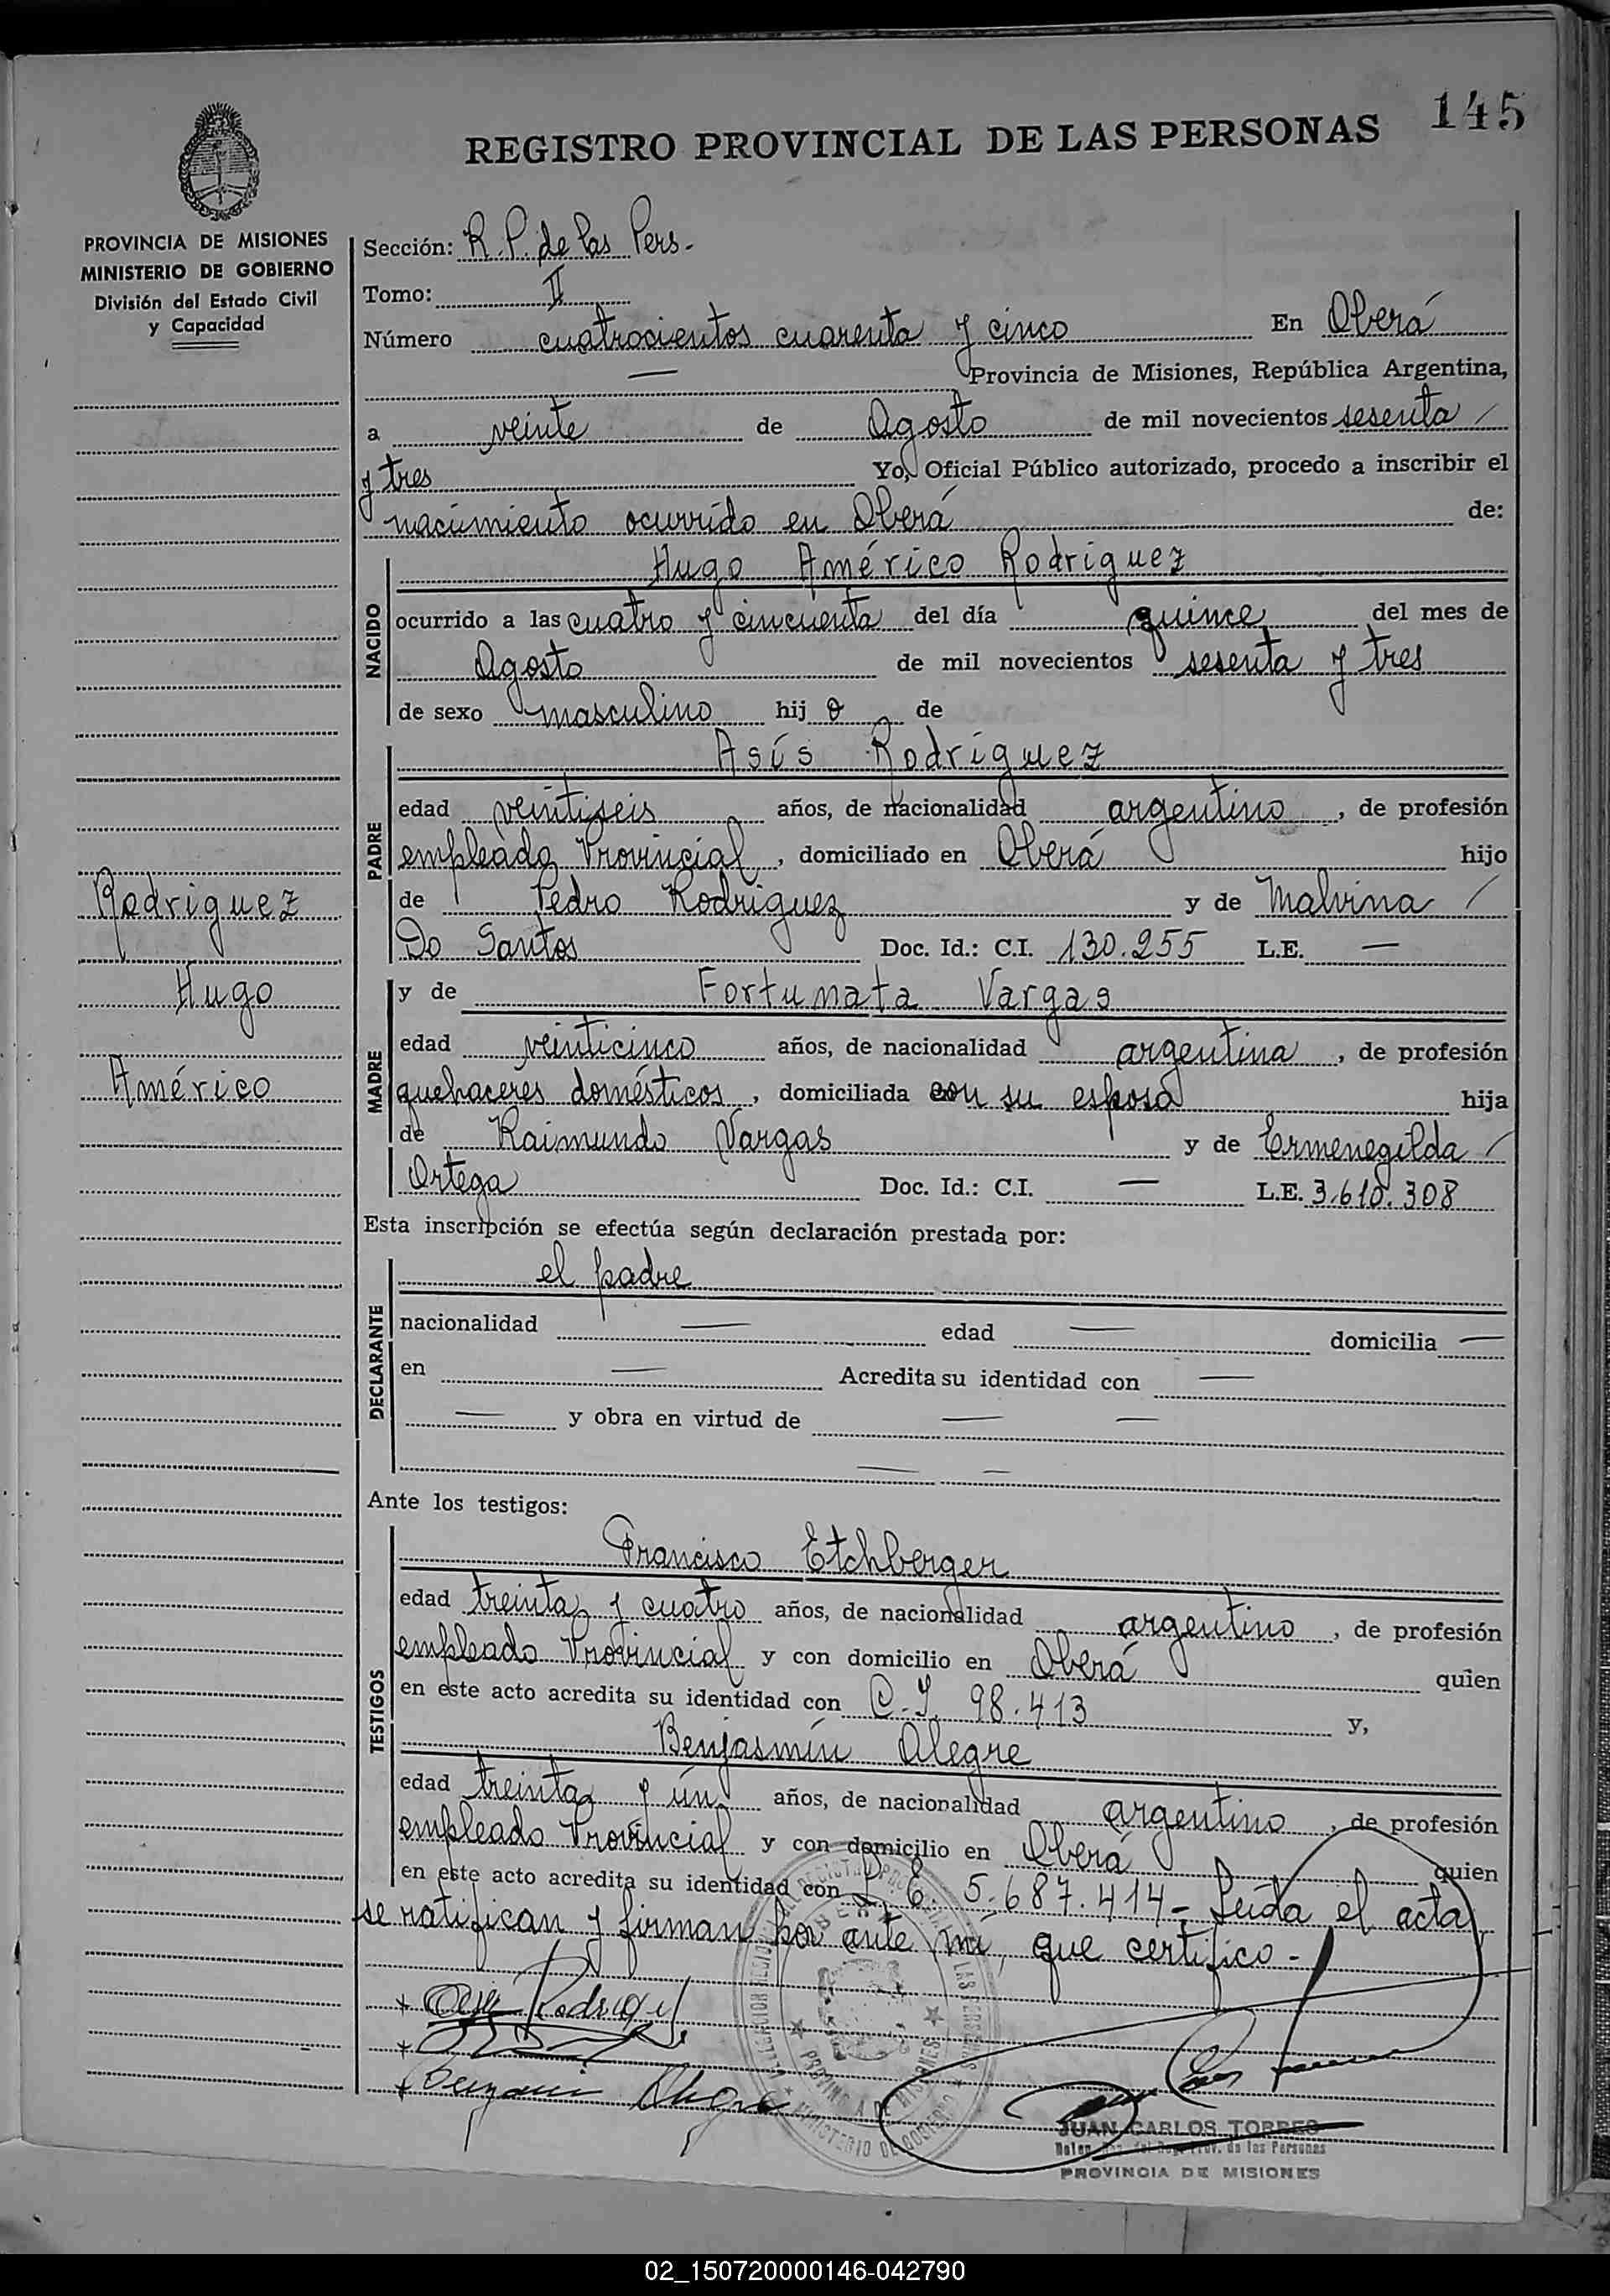 145
REGISTRO PROVINCIAL DE LAS PERSONAS
PROVINCIA DE MISIONES
MINISTERIO DE GOBIERNO
División del Estado Civil
y Capacidad
Sección: R. P. de las Pers.
Tomo: II
Número cuatrocientos cuarenta y cinco En Oberá
— Provincia de Misiones, República Argentina,
a veinte de Agosto de mil novecientos sesenta
y tres Yo, Oficial Público autorizado, procedo a inscribir el
nacimiento ocurrido en Oberá de:
NACIDO
Hugo Américo Rodriguez
ocurrido a las cuatro y cincuenta del día quince del mes de
Agosto de mil novecientos sesenta y tres
de sexo masculino hij o de
PADRE
Asís Rodríguez
edad veintiseis años, de nacionalidad argentino, de profesión
empleado Provincial, domiciliado en Oberá hijo
de Pedro Rodriguez y de Malvina
Do Santos Doc. Id.: C.I. 130.255 L.E. —
Rodriguez
Hugo
Américo
MADRE
y de Fortunata Vargas
edad veinticinco años, de nacionalidad argentina, de profesión
quehaceres domésticos, domiciliada con su esposo hija
de Raimundo Vargas y de Ermenegilda
Ortega Doc. Id.: C.I. — L.E. 3.610.308
Esta inscripción se efectúa según declaración prestada por:
DECLARANTE
el padre
nacionalidad — edad — domicilia —
en — Acredita su identidad con —
— y obra en virtud de — —
— —
Ante los testigos:
TESTIGOS
Francisco Etchberger
edad treinta y cuatro años, de nacionalidad argentino, de profesión
empleado Provincial y con domicilio en Oberá quien
en este acto acredita su identidad con C.I. 98.413 y,
Benjasmín Alegre
edad treinta y ún años, de nacionalidad argentino, de profesión
empleado Provincial y con domicilio en Oberá quien
en este acto acredita su identidad con L.E. 5.687.414- Leída el acta
se ratifican y firman por ante mí, que certifico-
JUAN CARLOS TORRES
Prov. de las Personas
PROVINCIA DE MISIONES
PROVINCIA DE MISIONES
MINISTERIO DE GOBIERNO
02_150720000146-042790